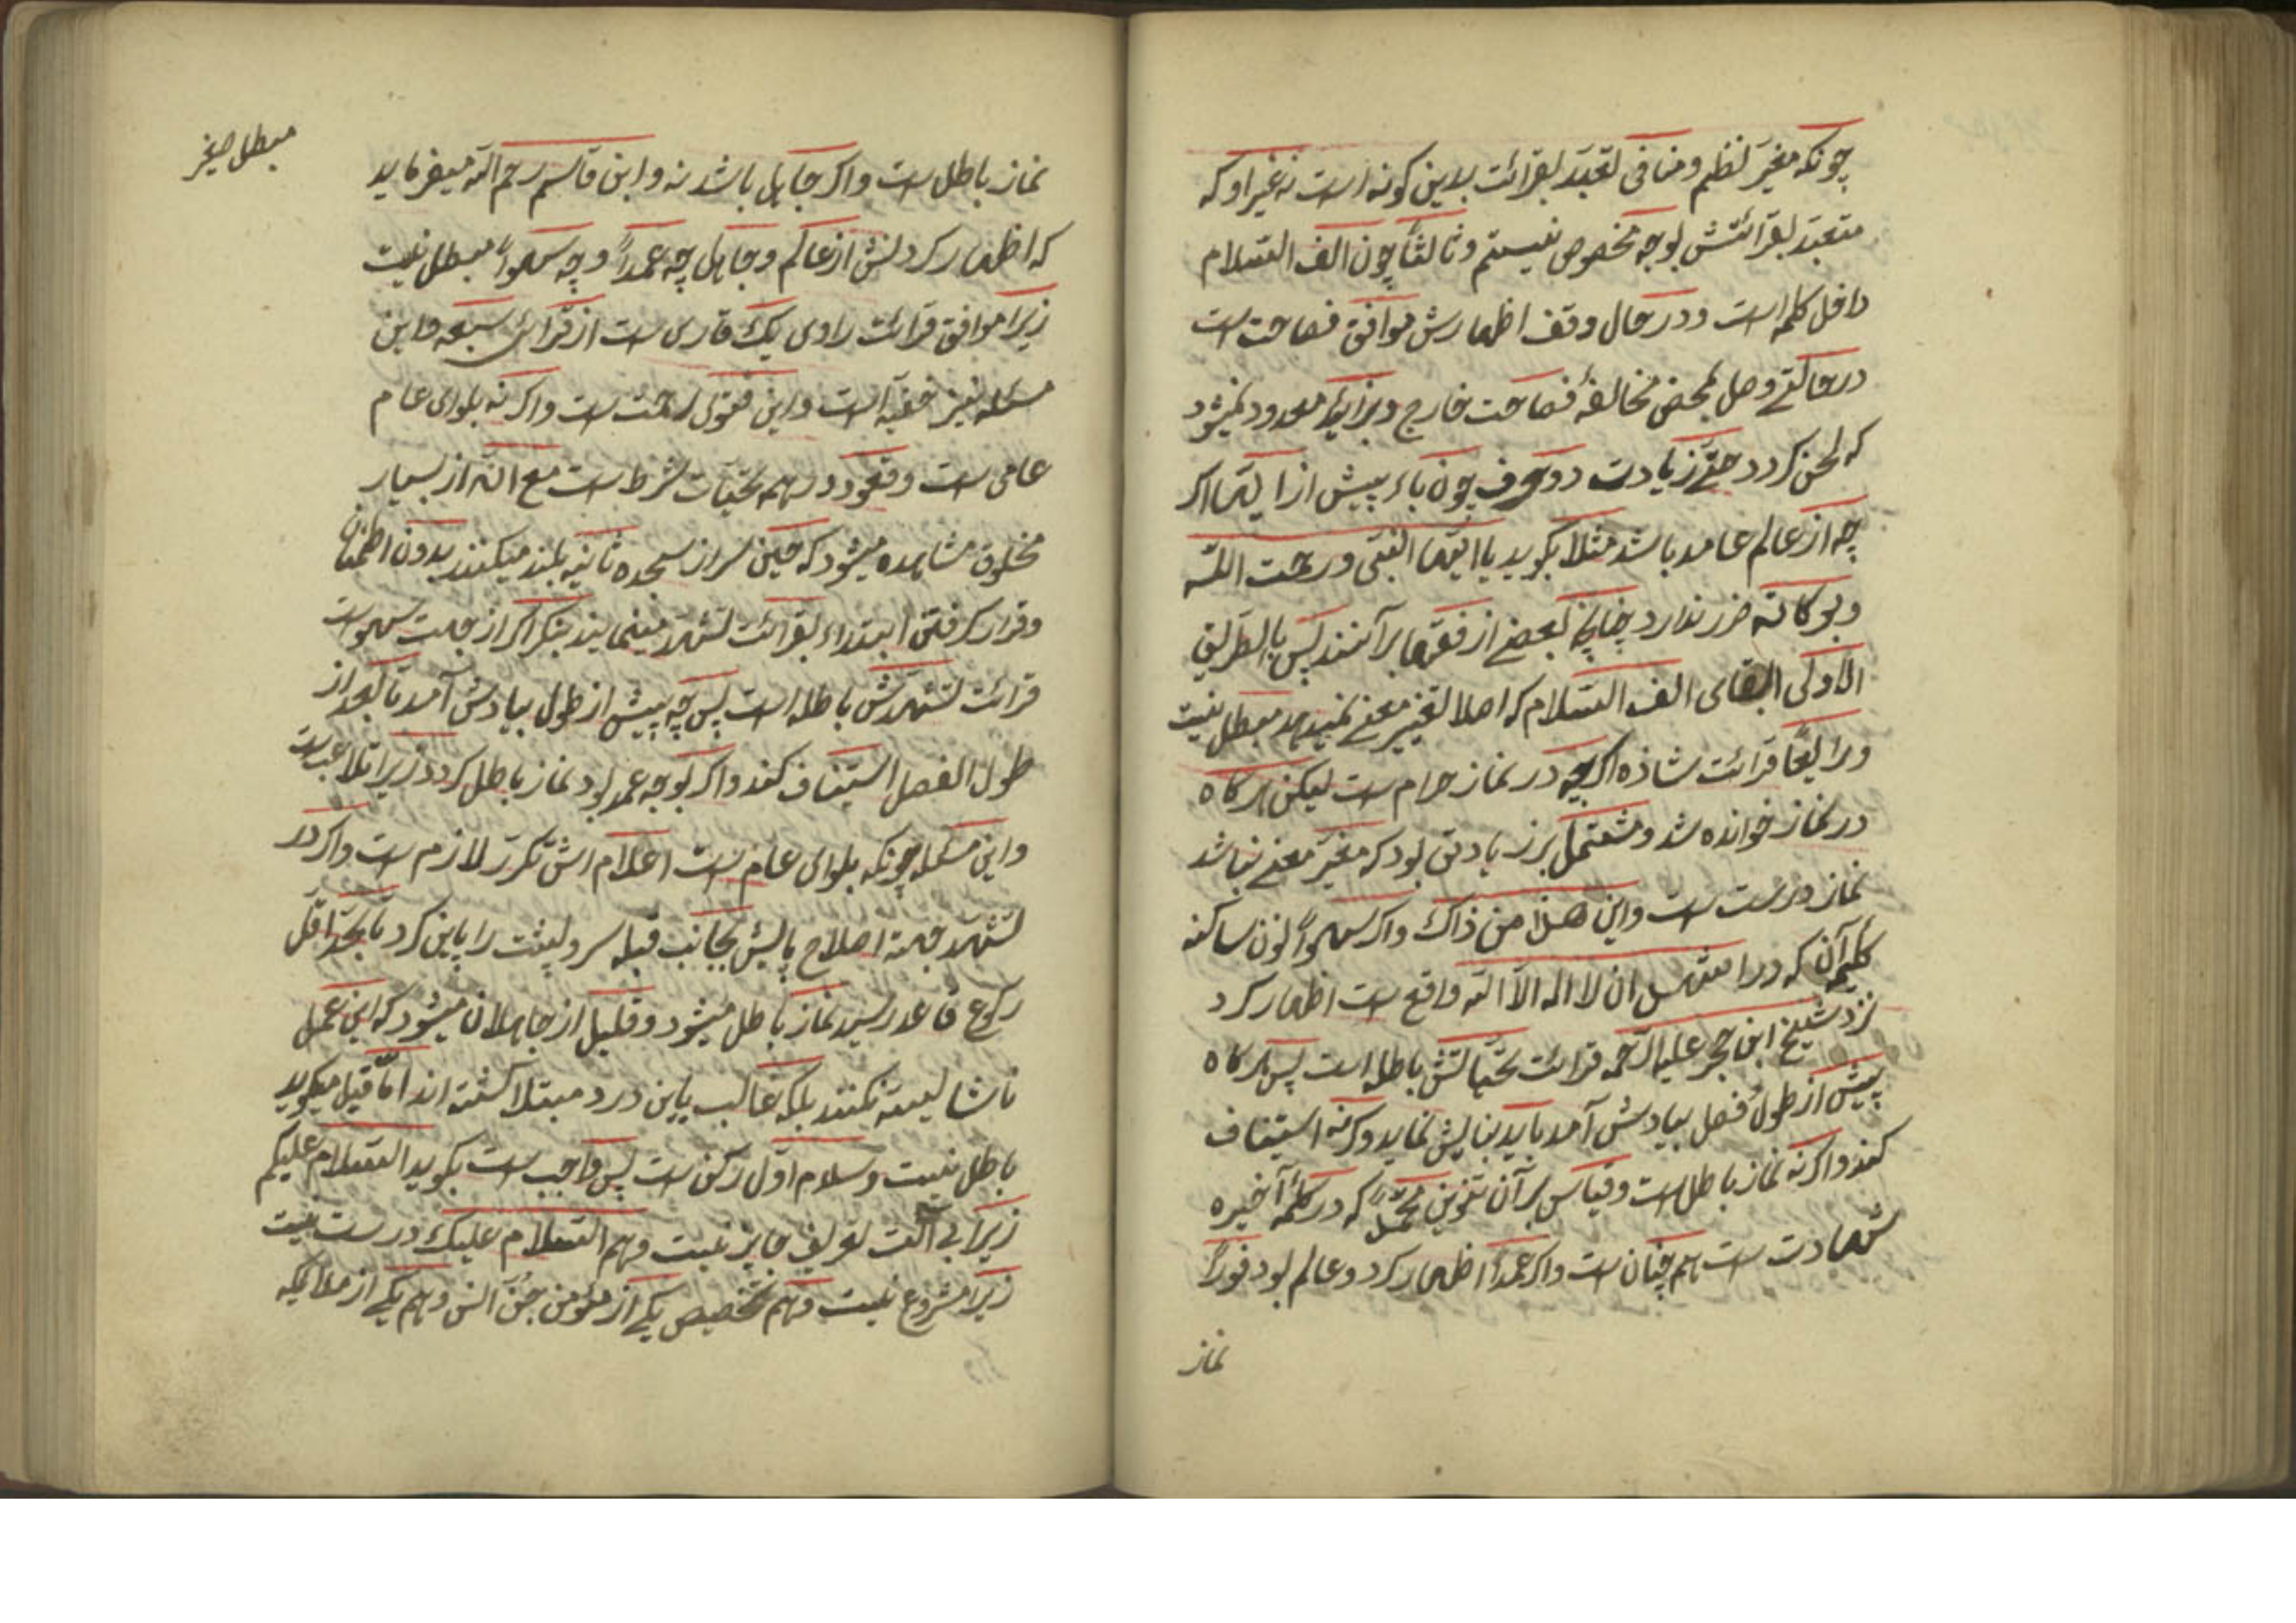 چونکه مغیّر نظم و منافی تعبّد بقرائت بدین کونه است نه غیر او که
متعبّد بقرائتش بوجه مخصوص نیستم و ثالثاً چون الف السّلام
داخل کلمه است و در حال وقف اظهارش موافق فصاحت است
در حالتی وصل بمحض مخالفهٔ فصاحت خارج و بزائد معدود نمیشود
که لحن کردد حتّی زیادت دو حرف چون یاء پیش از ایّها اکر
چه از عالم عامد باشد مثلا بکوید یا ایّها النّبی و رحمت اللّه
و برکاته ضرر ندارد چنانچه بعضی از فقها برآنند پس بالطّریق
الاولی ابقای الف السّلام که اصلا تغییر معنی نمیدهد مبطل نیست
و رابعاً قرائت شاذه اکرچه در نماز حرام ست لیکن هرکاه
در نماز خوانده شد و مشتمل بر زیادتی بود که مغیّر معنی نباشد
نماز درست ست و این هذا من ذاک و اکر سهواً نون ساکنه
کلمهٔ آن که در اشهد ان لا اله الّا اللّه واقع ست اظهار کرد
نزد شیخ ابن حجر علیه الرّحمه قرائت تحیّاتش باطله است پس هرکاه
پیش از طول فصل بیادش آمد باید بنایش نماید وکرنه استیناف
کند واکرنه نماز باطل ست و قیاس بر آن تنوین محمّدٌ که در کلمهٔ آخیره
شهادت ست هم چنان ست واکر عمداً اظهار کرد و عالم بود فوراً
نماز
نماز باطل ست واکر جاهل باشد نه و ابن قاسم رحم اللّه میفرماید
که اظهار کردنش از عالم و جاهل چه عمداً و چه سهواً مبطل نیست
زیرا موافق قرائت راوی یک قاری ست از قرّائ سبعه و این
مسئله نیز خفیه است و این فتوی رحمت ست واکرنه بلوای عام
عامی ست و قعود در همه تحیّات شرط ست مع انّه از بسیار
مخلوق مشاهده میشود که حین سر از سجده ثانیه بلند میکنند بدون اطمنان
و قرار کرفتن ابتداء بقرائت تشهّد مینمایند بنکر اکر از جهت سهوست
قرائت تشهّدش باطله است پس چه پیش از طول بیادش آمد تا بعد از
طول الفصل استیناف کند واکر بوجه عمد بود نماز باطل کردد زیرا تلاعب ست
و این مسئله چونکه بلوای عام ست اعلام اش تکرّر لازم ست واکر در
تشهّد جهة اصلاح پایش بجانب قبله سر و پشت را پاین کرد تا بحدّ اقل
رکوع قاعد رسید نماز باطل میشود و قلیل از جاهلان میشود که این عمل
ناشایسته نکنند بلکه غالب باین درد مبتلا کشته اند امّا قیل میکوید
باطل نیست و سلام اوّل رکن ست پس واجب ست بکوید السّلام علیکم
زیرا بی آلت تعریف جایز نیست و هم السّلام علیک درست نیست
زیرا مشروع نیست و هم تخصیص یکی از مؤمن جنّ انس و هم یکی از ملایکه
مبطل صیغر